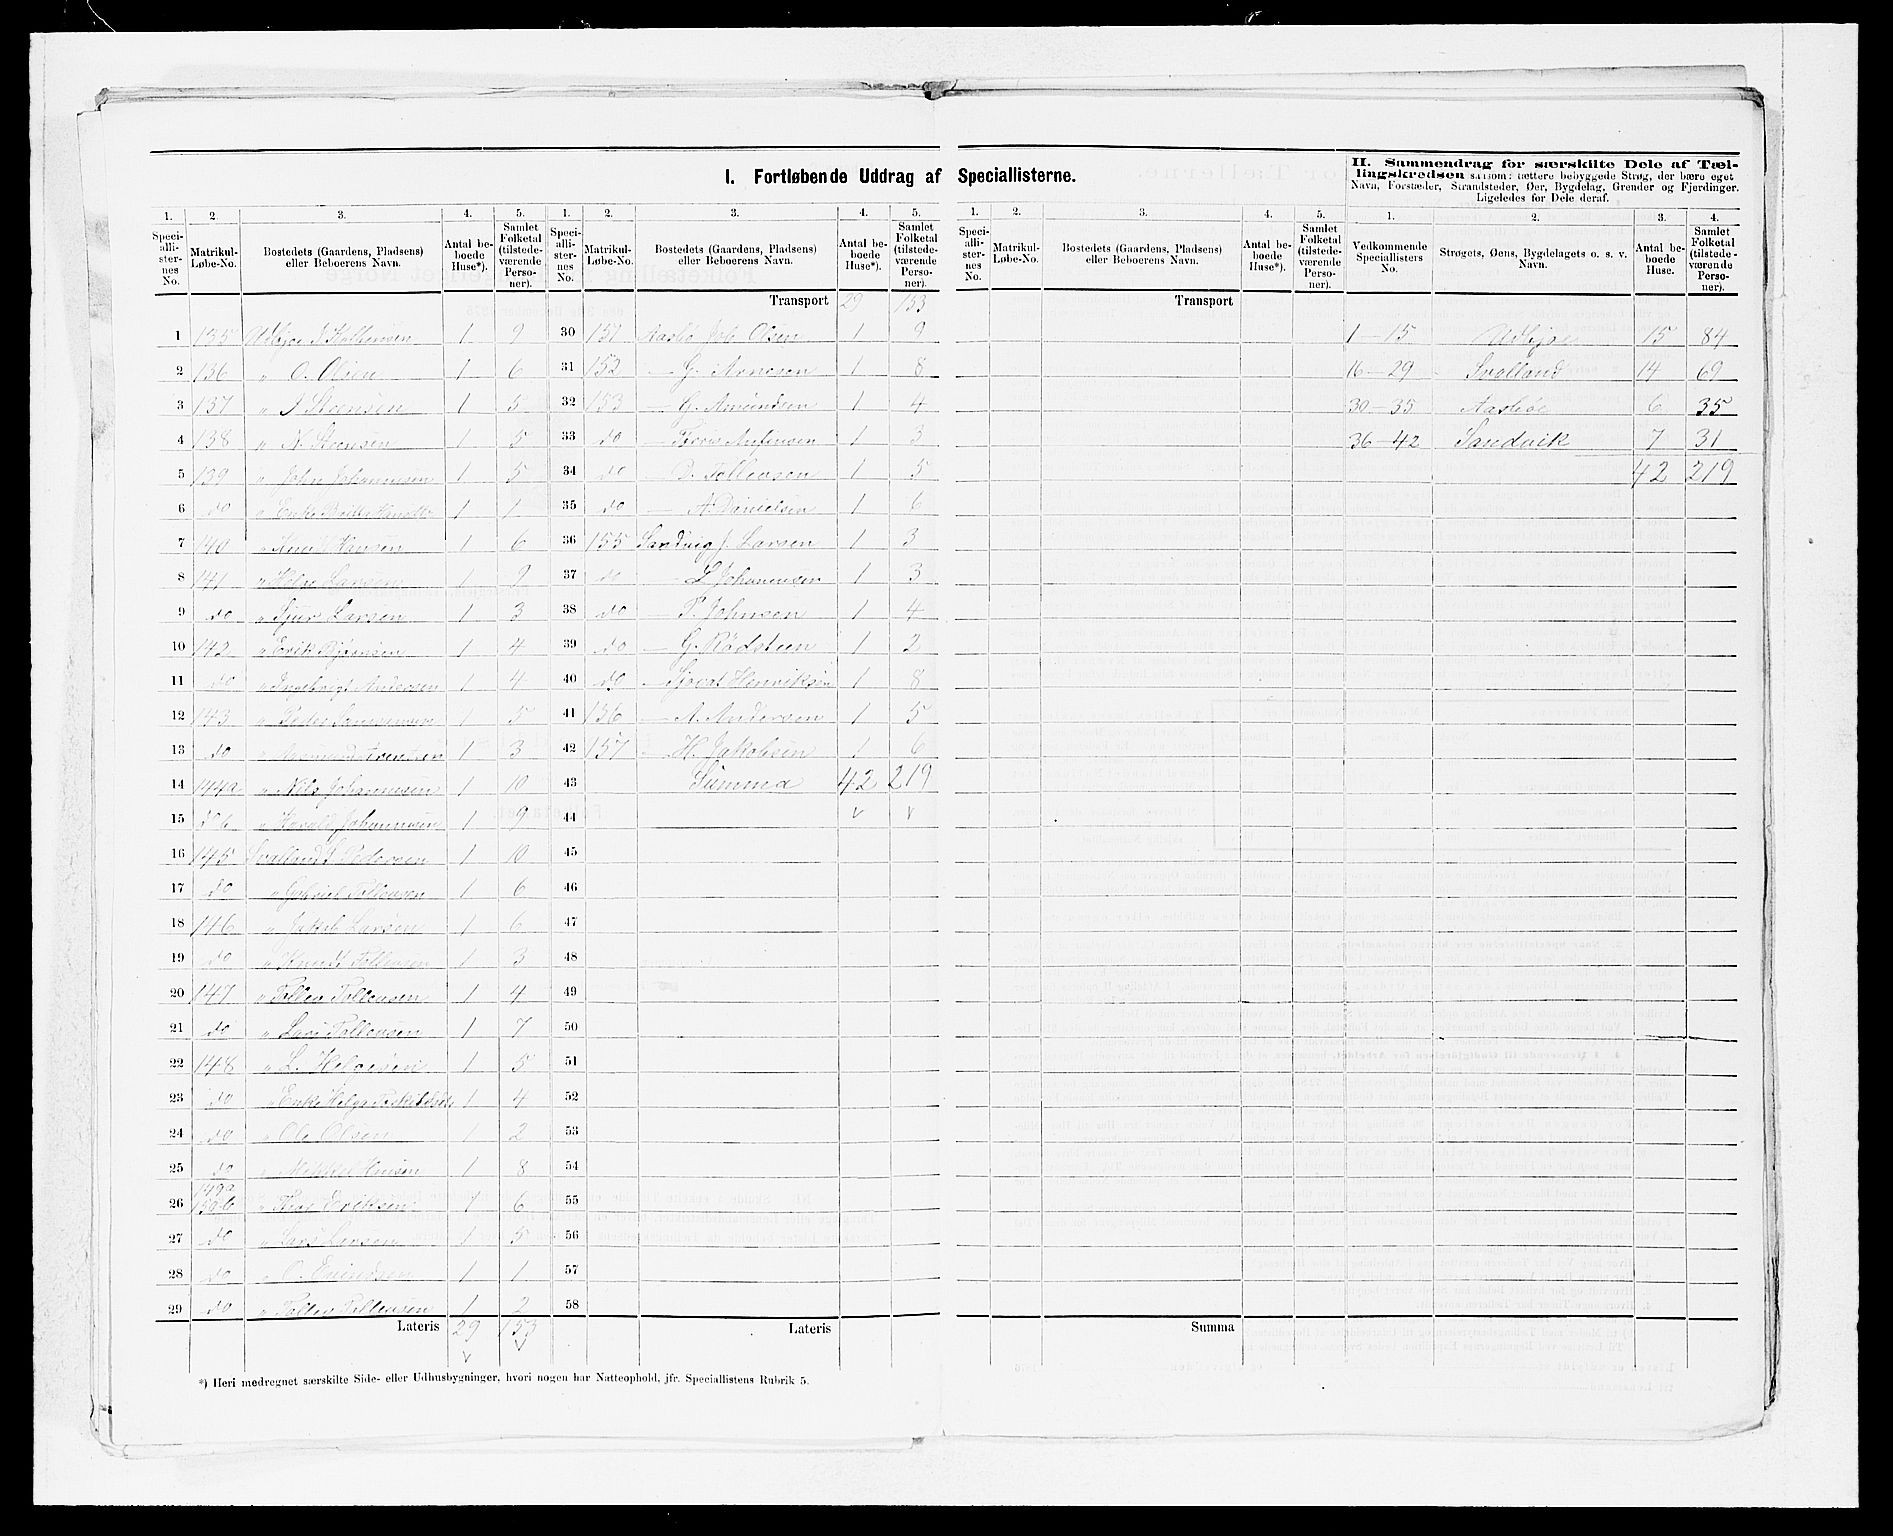 I. Fortløbende Uddrag af Speciallisterne.
II. Sammendrag for særskilte Dele af Tællingskredsen saasom: tættere bebyggede Strøg, der bære eget Navn, Forstæder, Strandsteder, Øer, Bygdelag, Grender og Fjerdinger. Ligeledes for Dele deraf.
1. 2. 3. 4. 5. 1. 2. 3. 4. 5. 1. 2. 3. 4. 5. 1. 2. 3. 4.
Speciallisternes No. Matrikul-Løbe-No. Bostedets (Gaardens, Pladsens) eller Beboerens Navn. Antal beboede Huse*). Samlet Folketal (tilstedeværende Personer).
Speciallisternes No. Matrikul-Løbe-No. Bostedets (Gaardens, Pladsens) eller Beboerens Navn. Antal beboede Huse*). Samlet Folketal (tilstedeværende Personer).
Speciallisternes No. Matrikul-Løbe-No. Bostedets (Gaardens, Pladsens) eller Beboerens Navn. Antal beboede Huse*). Samlet Folketal (tilstedeværende Personer).
Vedkommende Speciallisters No. Strøgets, Øens, Bygdelagets o. s. v. Navn. Antal beboede Huse. Samlet Folketal (tilstedeværende Personer).
1 135 1 9
2 136 " O. Olsen 1 6
3 137 " J Steensen 1 5
4 138 " N. Steensen 1 5
5 139 " John Johannesen 1 5
6 do " Enke 1 1
7 140 " Hansen 1 6
8 141 " Helge Larsen 1 9
9 do " Sjur Larsen 1 3
10 142 " Erik 1 4
11 do " Ingebrigt Andersen 1 4
12 143 " Peder 1 5
13 do " 1 3
14 144a " Nils Johannesen 1 10
15 do b " Johannesen 1 9
16 145 Svolland Pedersen 1 10
17 do " Gabriel Tollevsen 1 6
18 146 " Jakob Larsen 1 6
19 do " Knud Tollevsen 1 3
20 147 " Tollev Tollevsen 1 4
21 do " Lars Tollevsen 1 7
22 148 " L. Helgesen 1 5
23 do " Enke Helga 1 4
24 do " Ole Olsen 1 2
25 do " Mikkel 1 8
26 149a " 1 6
27 do " Lars Larsen 1 5
28 do " O. 1 1
29 do " Tollev Tollevsen 1 2
Lateris 29 153
Transport 29 153
30 151 Aasbø Joh. Olsen 1 9
31 152 — G. Arnesen 1 8
32 153 — G. Amundsen 1 4
33 do — 1 3
34 do — Tollevsen 1 5
35 do — A. Danielsen 1 6
36 155 Sandvig J. Larsen 1 3
37 do — L Johannesen 1 3
38 do — P. Johnsen 1 4
39 do — G. Rødsteen 1 2
40 do — Sjovat Henriksen 1 8
41 156 — A. Andersen 1 5
42 157 — H. Jakobsen 1 6
43 Summa 42 219
44
45
46
47
48
49
50
51
52
53
54
55
56
57
58
Lateris
Transport
Summa
1—15 Udbjoe 15 84
16—29 Svolland 14 69
30—35 Aasbøe 6 35
36—42 Sandvik 7 31
42 219
*) Heri medregnet særskilte Side- eller Udhusbygninger, hvori nogen har Natteophold, jfr. Speciallistens Rubrik 5.